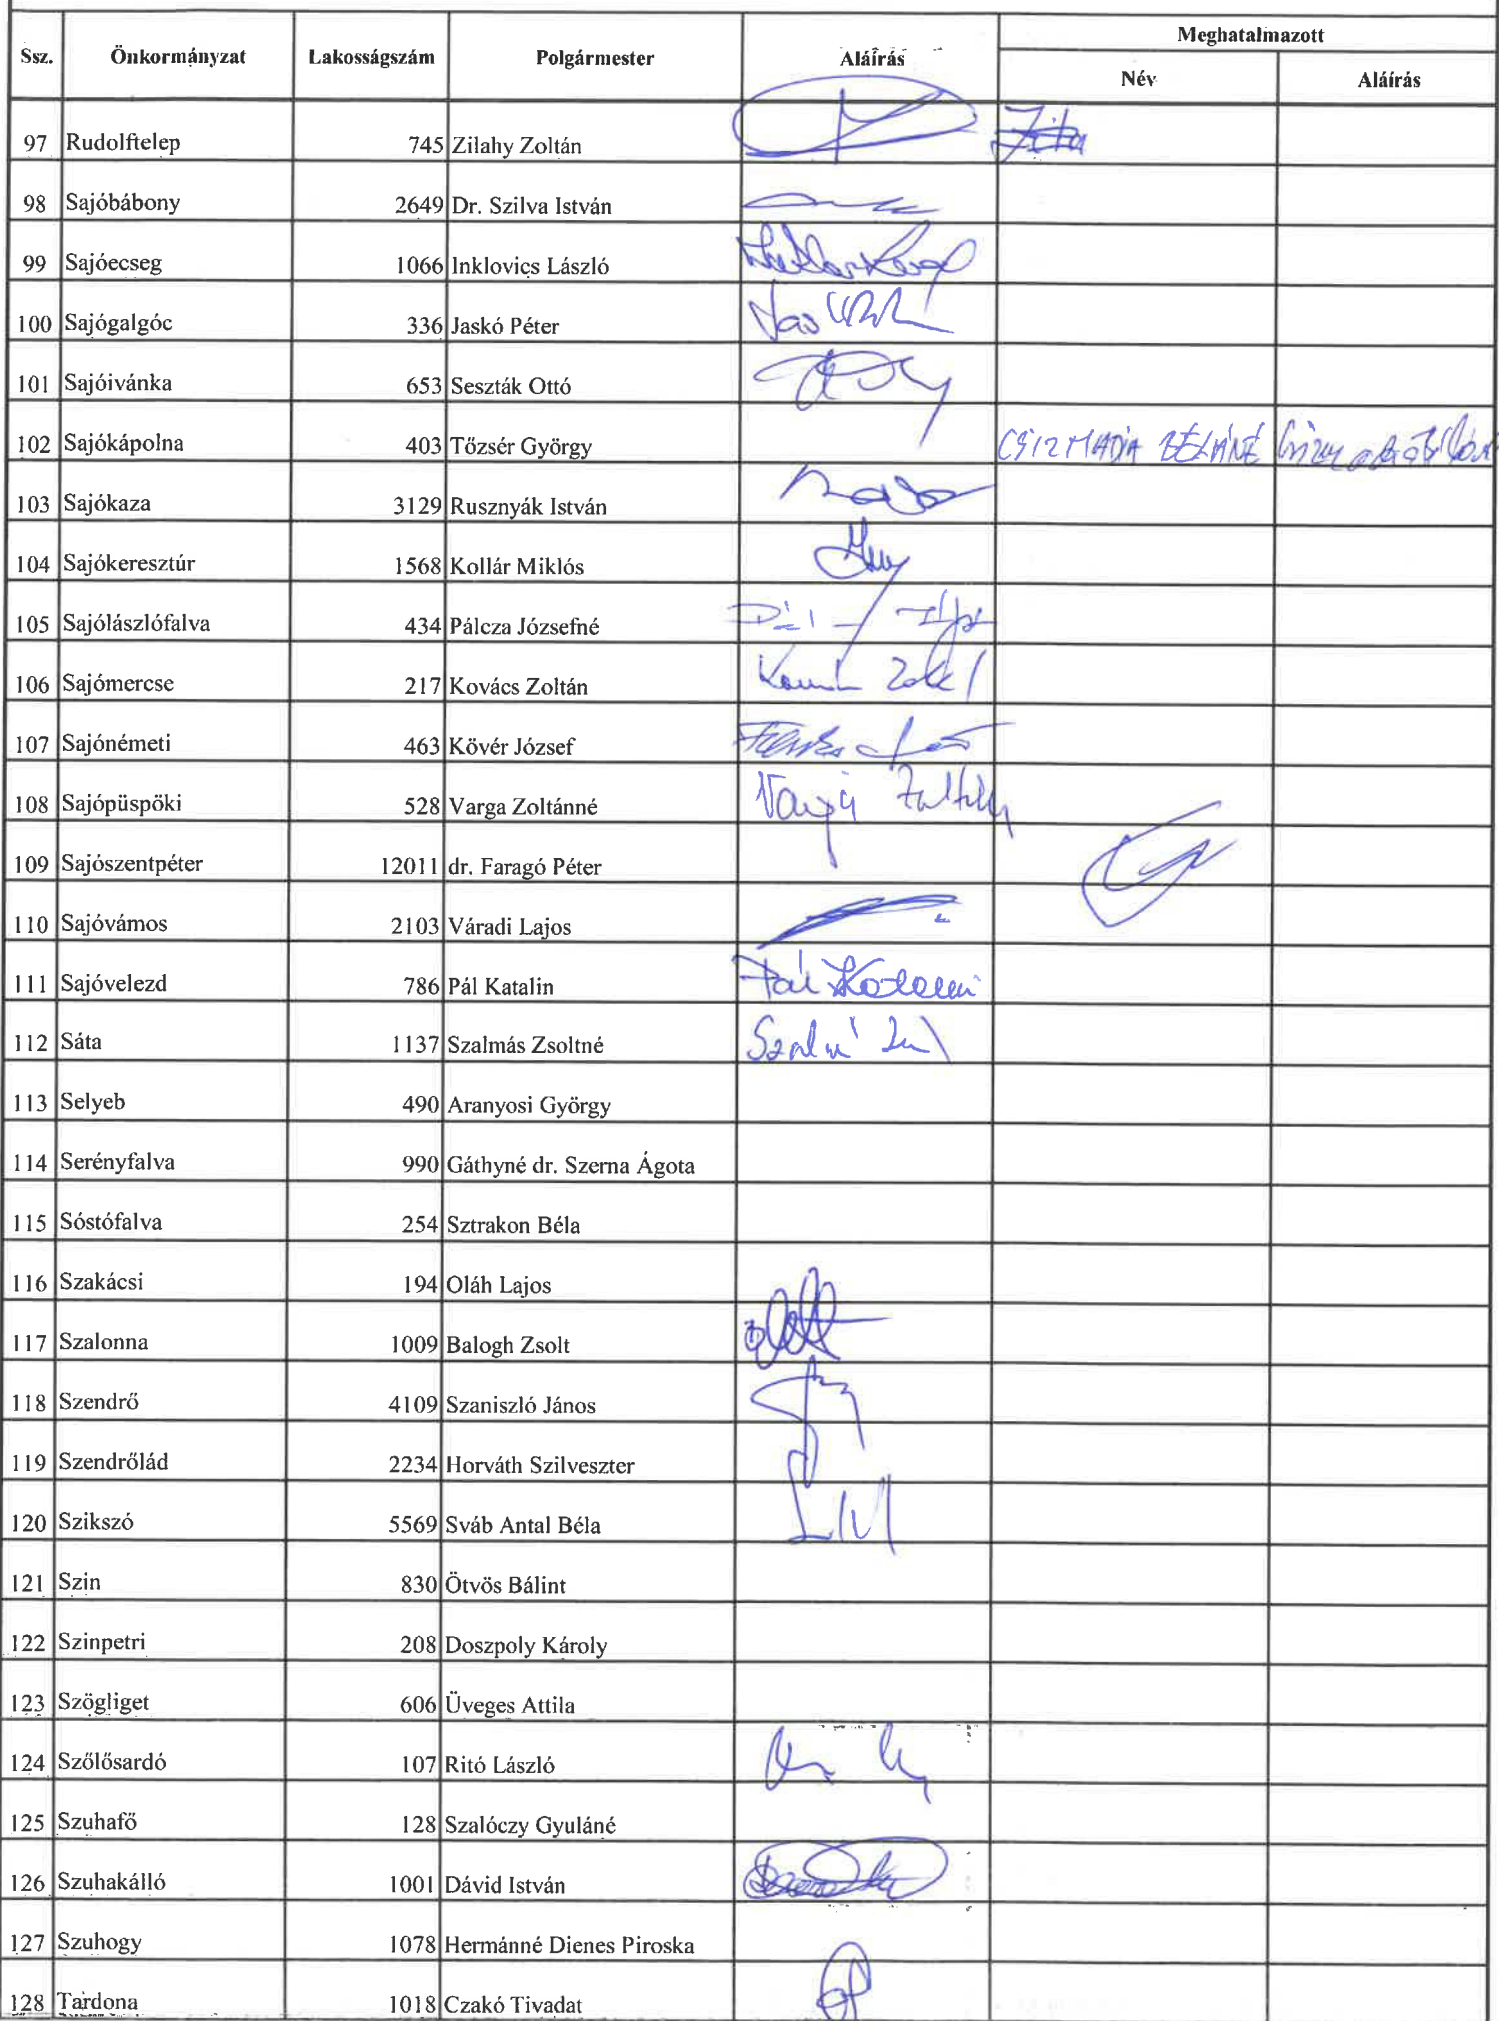 Ssz. Önkormányzat Lakosságszám Polgármester Aláírás Meghatalmazott
Név Aláírás
97 Rudolftelep 745 Zilahy Zoltán
98 Sajóbábony 2649 Dr. Szilva István
99 Sajóecseg 1066 Inklovics László
100 Sajógalgóc 336 Jaskó Péter
101 Sajóivánka 653 Seszták Ottó
102 Sajókápolna 403 Tőzsér György CSIZMADIA BÉLÁNÉ
103 Sajókaza 3129 Rusznyák István
104 Sajókeresztúr 1568 Kollár Miklós
105 Sajólászlófalva 434 Pálcza Józsefné
106 Sajómercse 217 Kovács Zoltán
107 Sajónémeti 463 Kövér József
108 Sajópüspöki 528 Varga Zoltánné
109 Sajószentpéter 12011 dr. Faragó Péter
110 Sajóvámos 2103 Váradi Lajos
111 Sajóvelezd 786 Pál Katalin Pál Katalin
112 Sáta 1137 Szalmás Zsoltné
113 Selyeb 490 Aranyosi György
114 Serényfalva 990 Gáthyné dr. Szerna Ágota
115 Sóstófalva 254 Sztrakon Béla
116 Szakácsi 194 Oláh Lajos
117 Szalonna 1009 Balogh Zsolt
118 Szendrő 4109 Szaniszló János
119 Szendrőlád 2234 Horváth Szilveszter
120 Szikszó 5569 Sváb Antal Béla
121 Szin 830 Ötvös Bálint
122 Szinpetri 208 Doszpoly Károly
123 Szögliget 606 Üveges Attila
124 Szőlősardó 107 Ritó László
125 Szuhafő 128 Szalóczy Gyuláné
126 Szuhakálló 1001 Dávid István
127 Szuhogy 1078 Hermánné Dienes Piroska
128 Tardona 1018 Czakó Tivadat